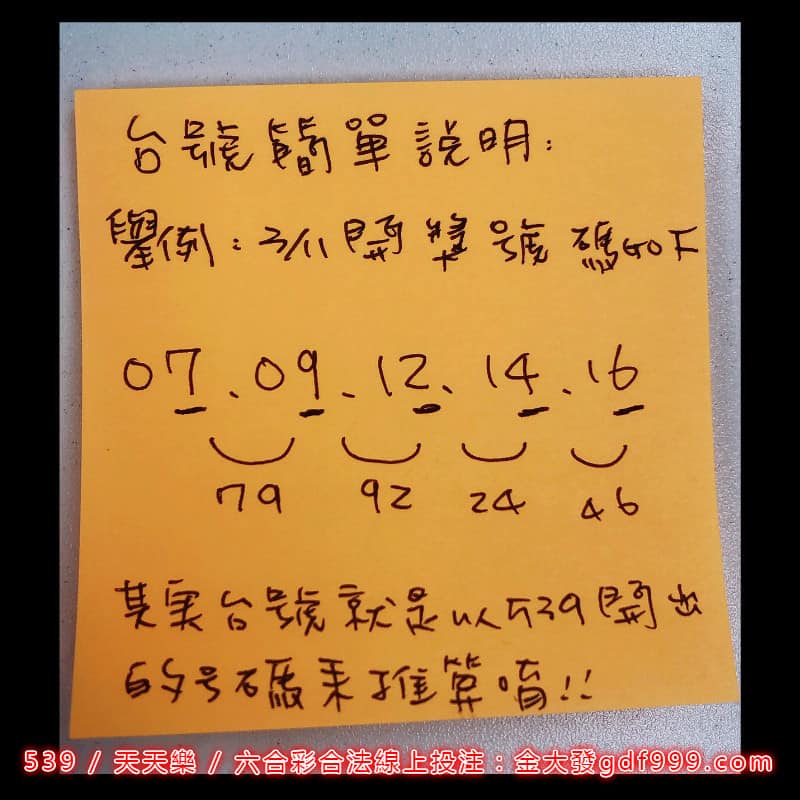 台號簡單說明：
舉例：3/11開獎號碼如下
07.09.12.14.16
79 92 24 46
其実台號就是以539開出
的号碼來推算唷!!
539 / 天天樂 / 六合彩合法線上投注：金大發gdf999.com